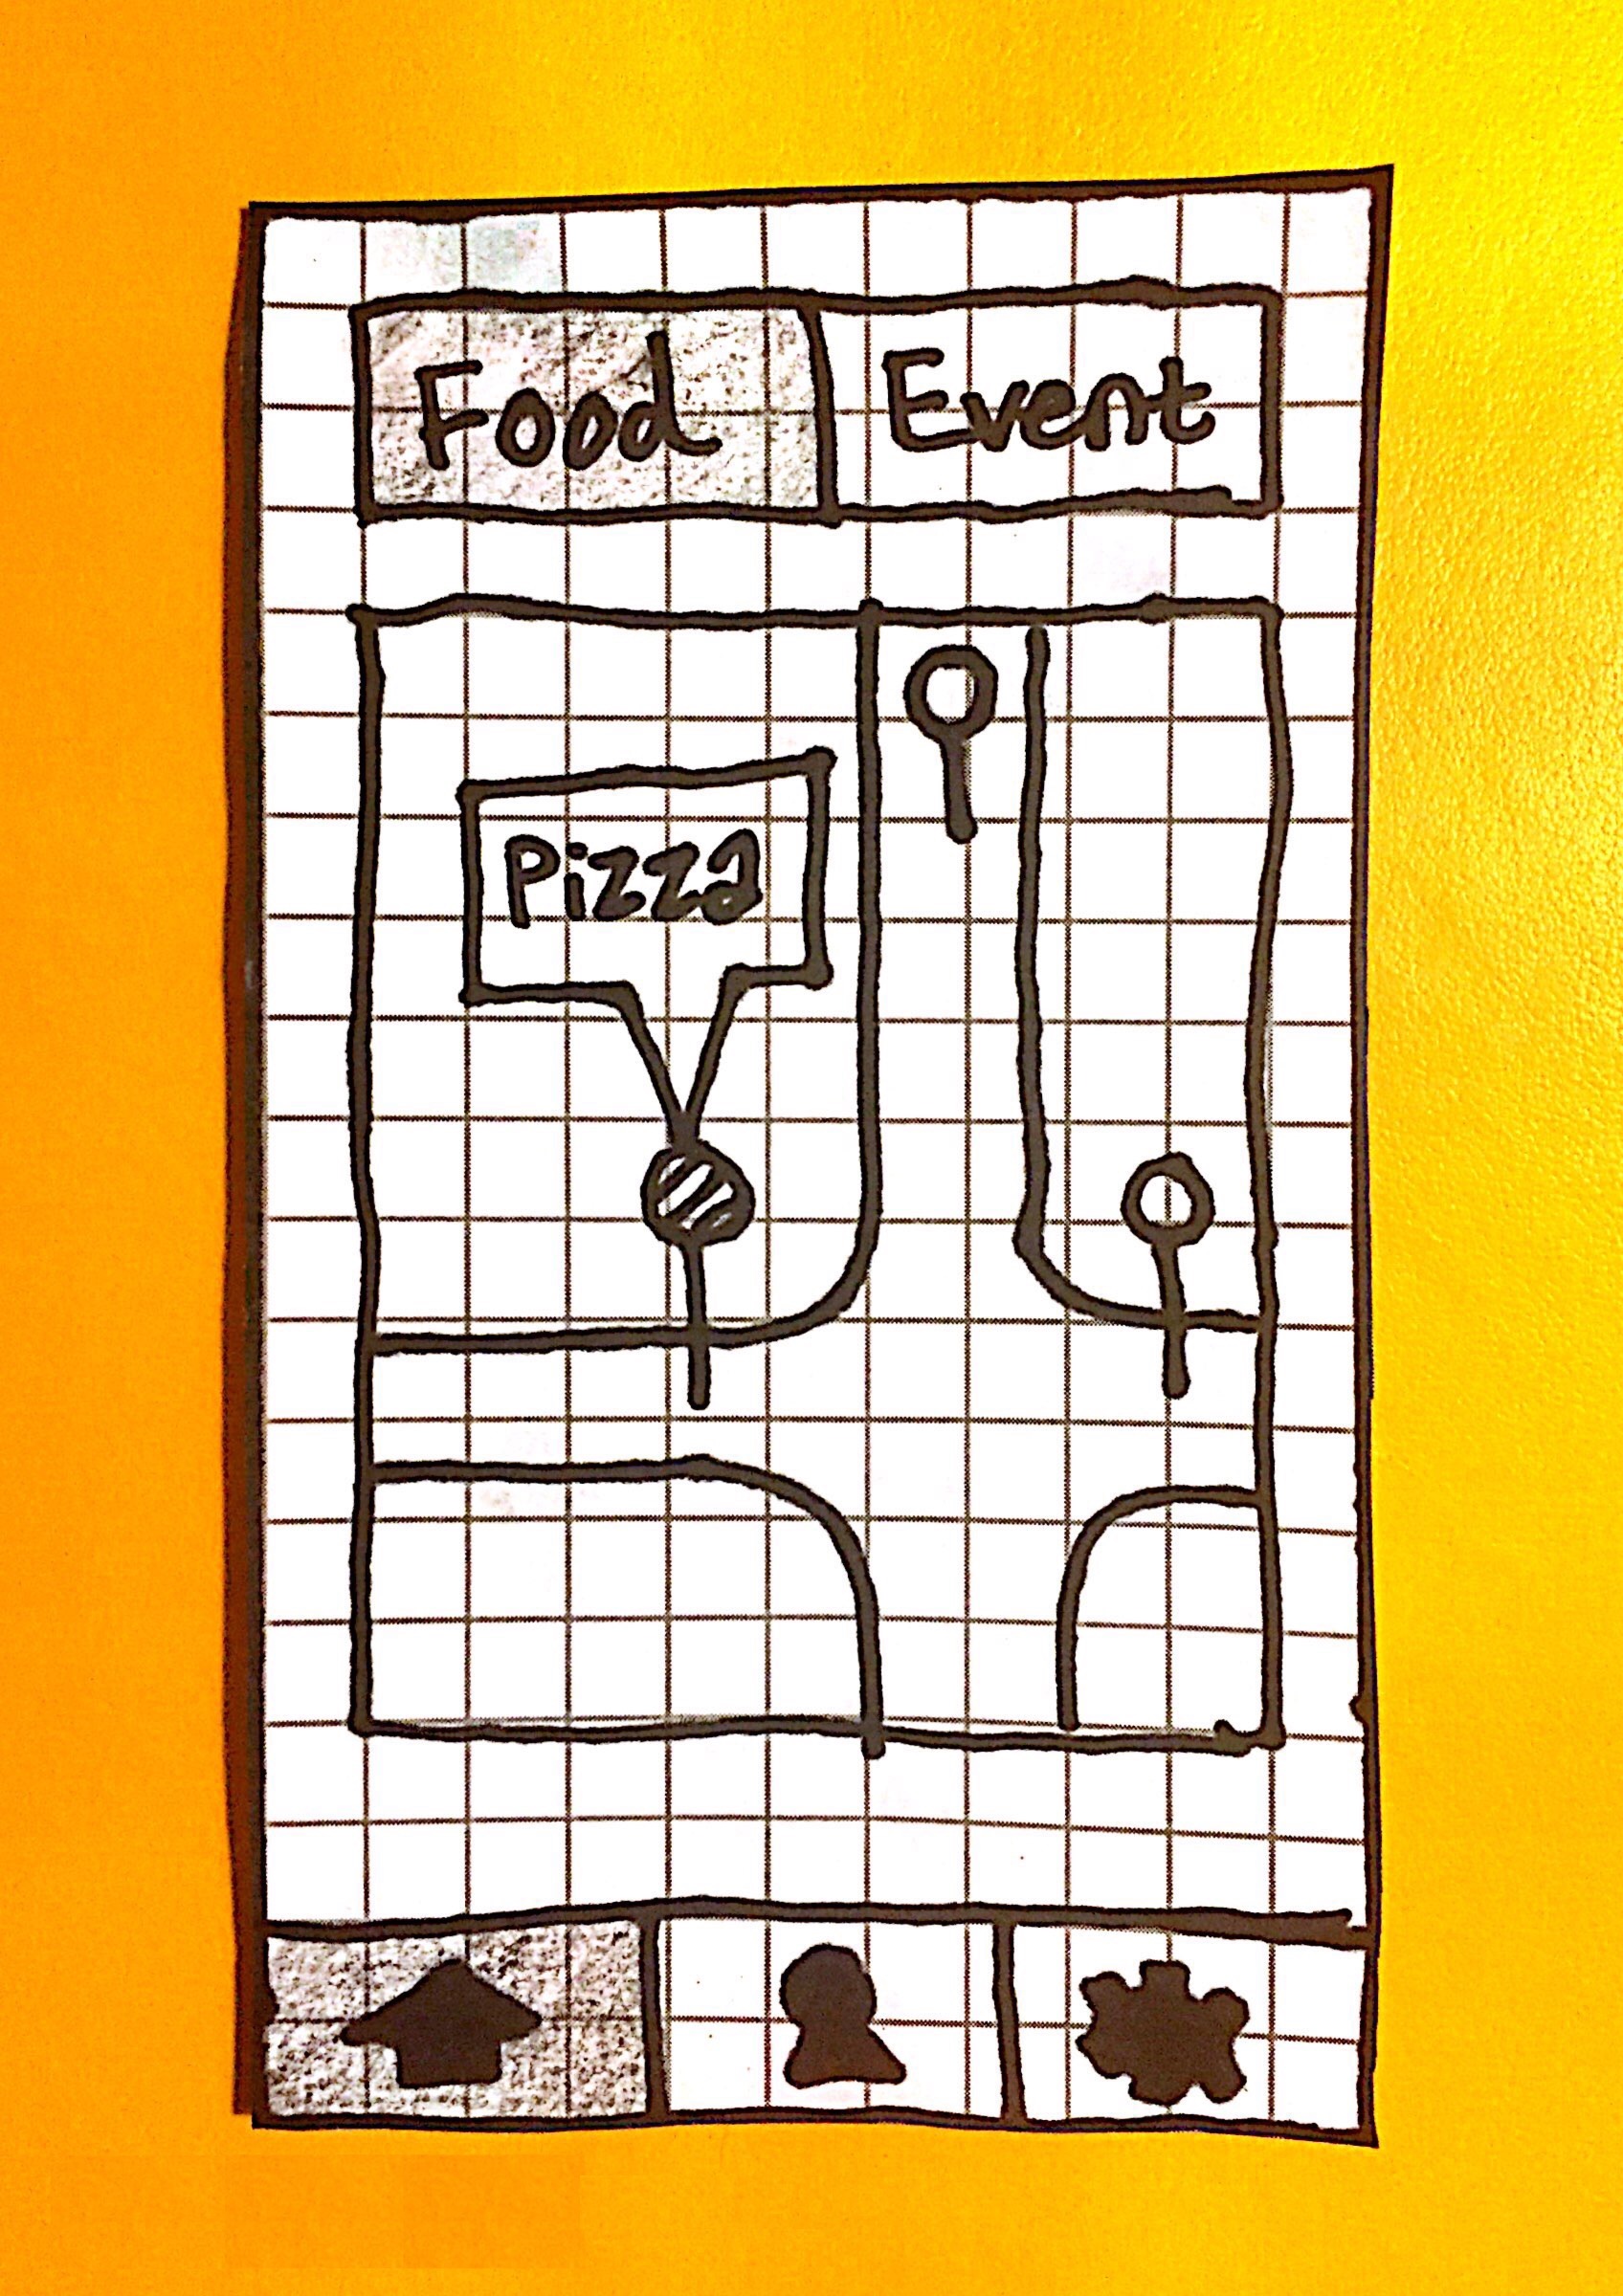 Food Event
Pizza